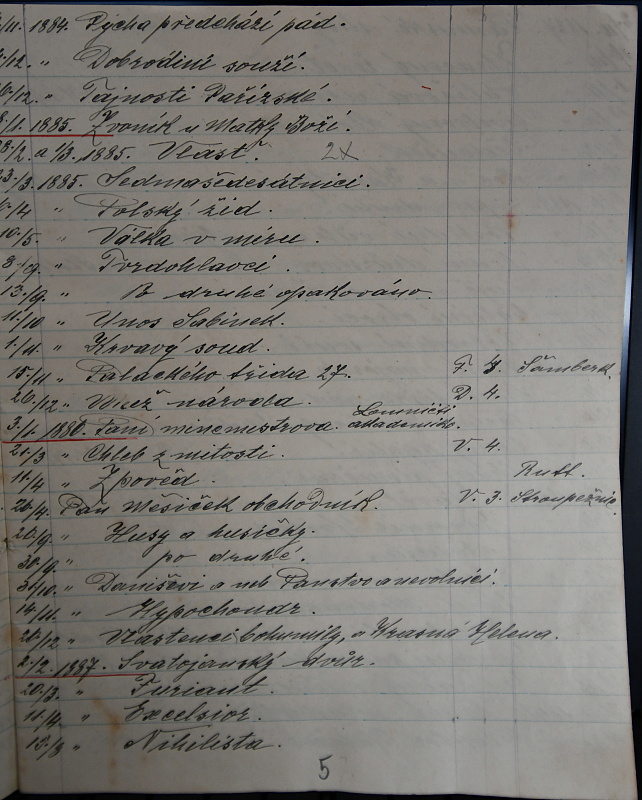 /11. 1884. Pýcha předchází pád.
/12. " Dobrodiní souží.
/12. " Tajnosti Pařížské.
/1. 1885. Zvoník u Matky Boží.
28/2. a 1/3. 1885. Vlasť. 2x
23/3. 1885. Sedmašedesátníci.
/4 " Polský žid.
10/5. " Válka v míru.
8/9. " Tvrdohlavci.
13/9. " B druhé opakováno.
11/10 " Únos Sabinek.
1/11. " Krvavý soud.
15/11 " Palackého třída 27. F. 4. Šamberk.
26/12 " národa. D. 4.
3/1. 1886. Paní mincmistrova.
21/3 " Chléb z milosti. V. 4.
11/4 " Zpověď. Rutt.
26/4. Pan Měsíček obchodník. V. 3. Stroupežnic.
20/9. " Husy a husičky.
30/9. " po druhé.
31/10. " Daniševi a neb Panstvo a nevolníci.
14/11. " Hypochondr.
26/12 " Vlastenci bohumily, a Krásná Helena.
2/2. 1887. Svatojanský dvůr.
20/3. " Furiant.
11/4. " Excelsior.
15/8 " Nihilista.
5